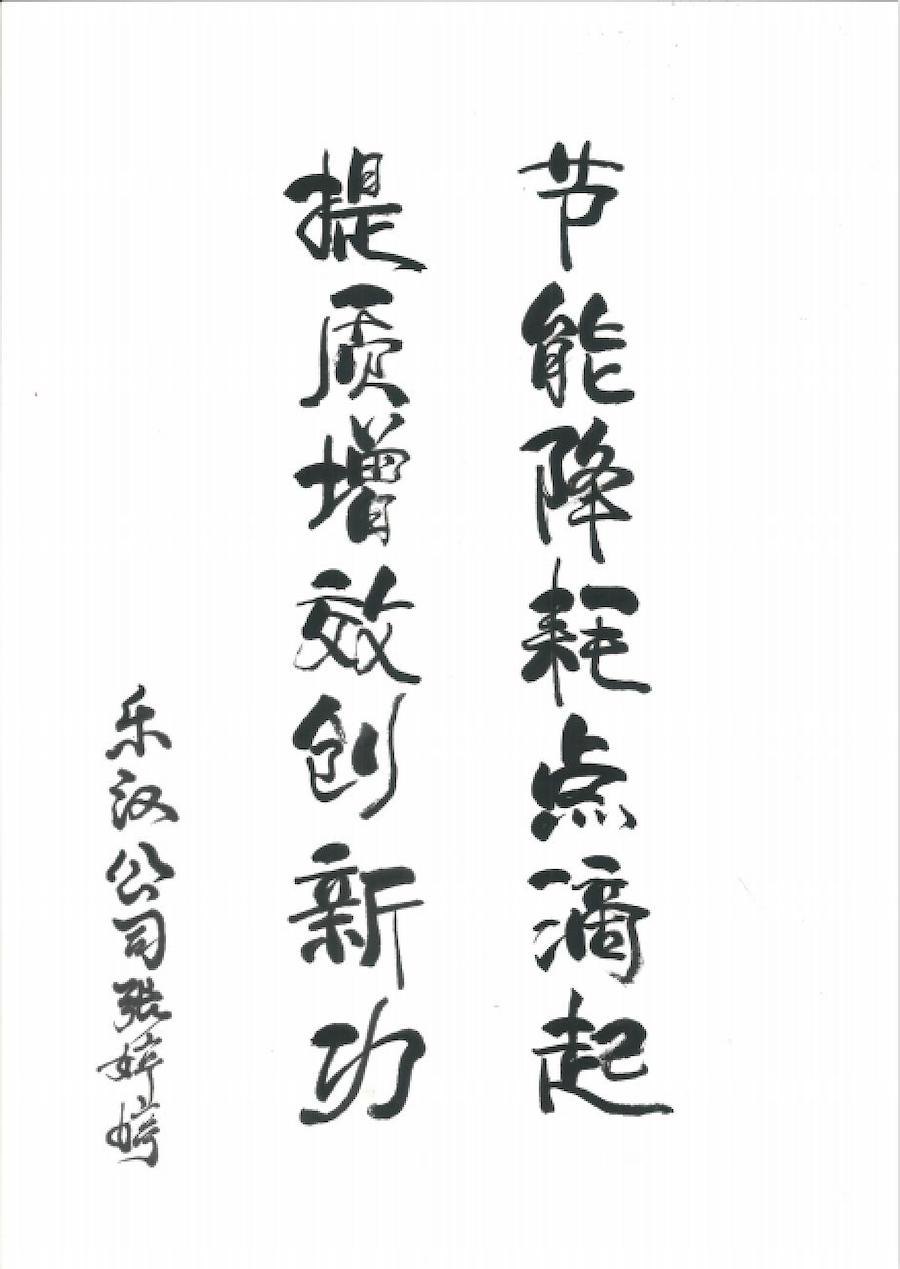 节能降耗点滴起
提质增效创新功
乐汉公司张婷婷